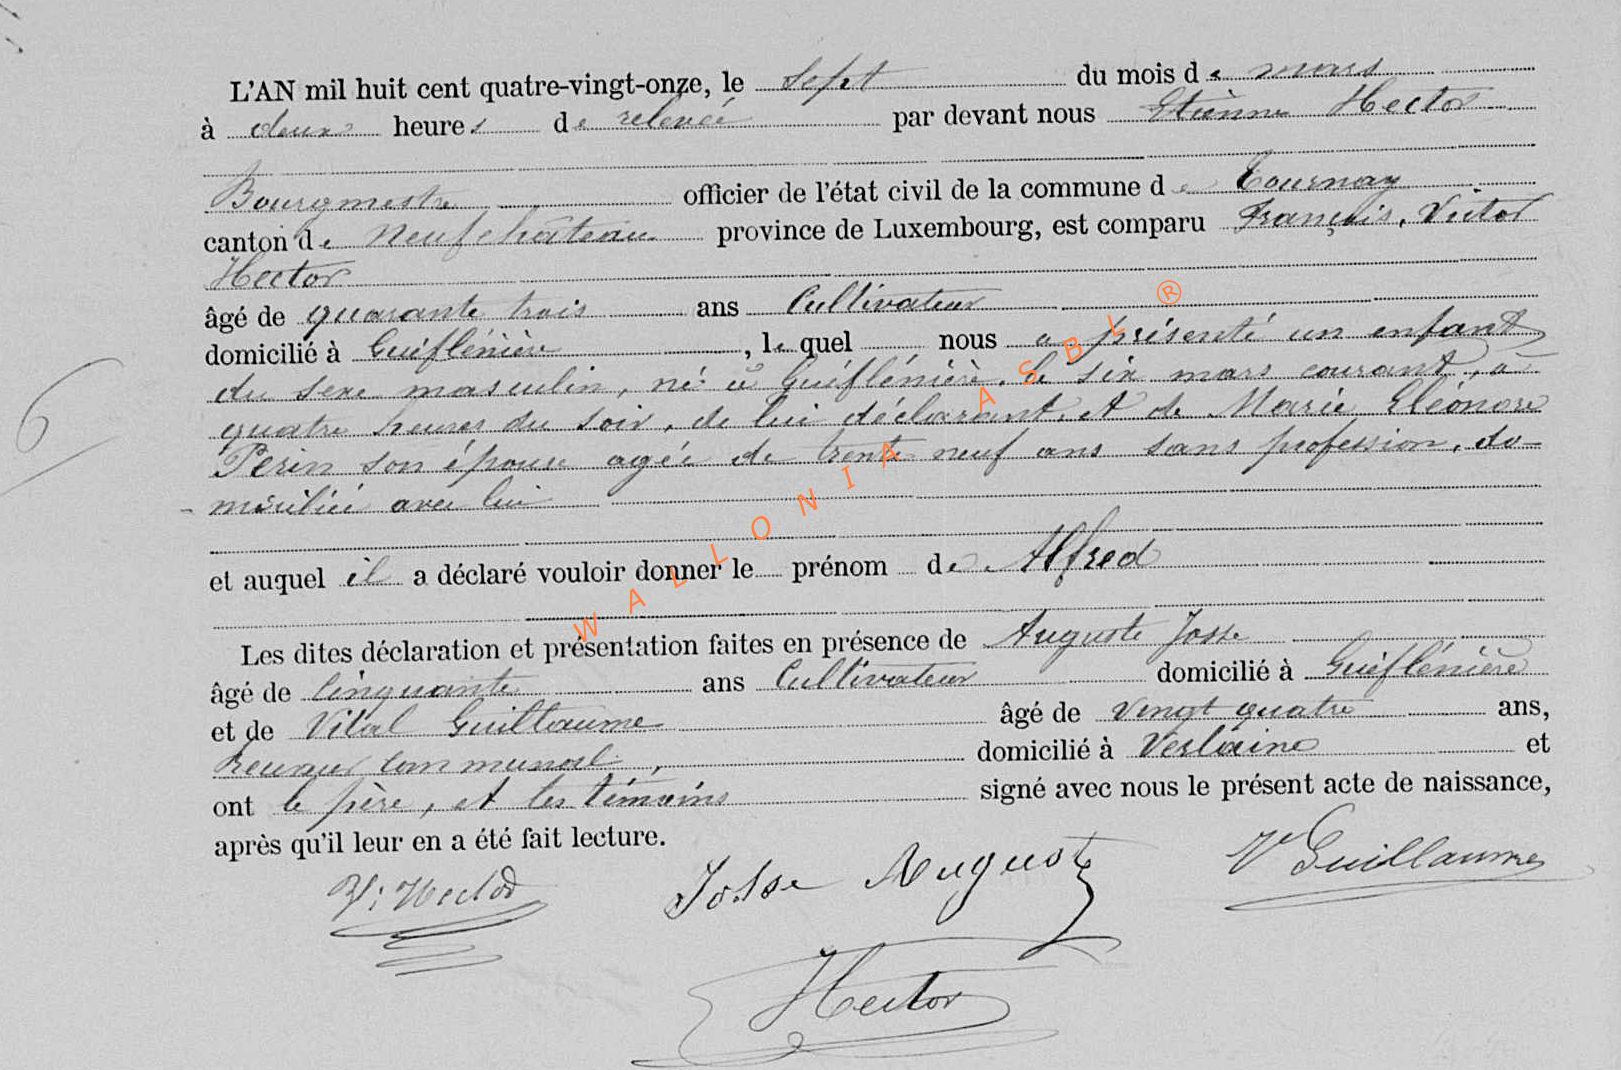 L'AN mil huit cent quatre-vingt-onze, le sept du mois de mars
à deux heures de relevée par devant nous Etienne Hector
Bourgmestre officier de l'état civil de la commune de Tournay
canton de Neufchâteau province de Luxembourg, est comparu François, Victor
Hector
âgé de quarante trois ans Cultivateur
domicilié à Gueflénière, le quel nous a présenté un enfant
du sexe masculin, né à Gueflénière, le six mars courant, à
quatre heures du soir, de lui déclarant, et de Marie Eléonore
Perin son épouse agée de trente neuf ans sans profession, do-
miciliée avec lui
et auquel il a déclaré vouloir donner le prénom de Alfred
Les dites déclaration et présentation faites en présence de Auguste Josse
âgé de Cinquante ans Cultivateur domicilié à Gueflénière
et de Vital Guillaume âgé de vingt quatre ans,
Receveur Communal, domicilié à Verlaine et
ont le père, et les témoins signé avec nous le présent acte de naissance,
après qu'il leur en a été fait lecture.
V. Hector Josse Auguste V Guillaume
Hector
6
WALLONIA ASBL ®